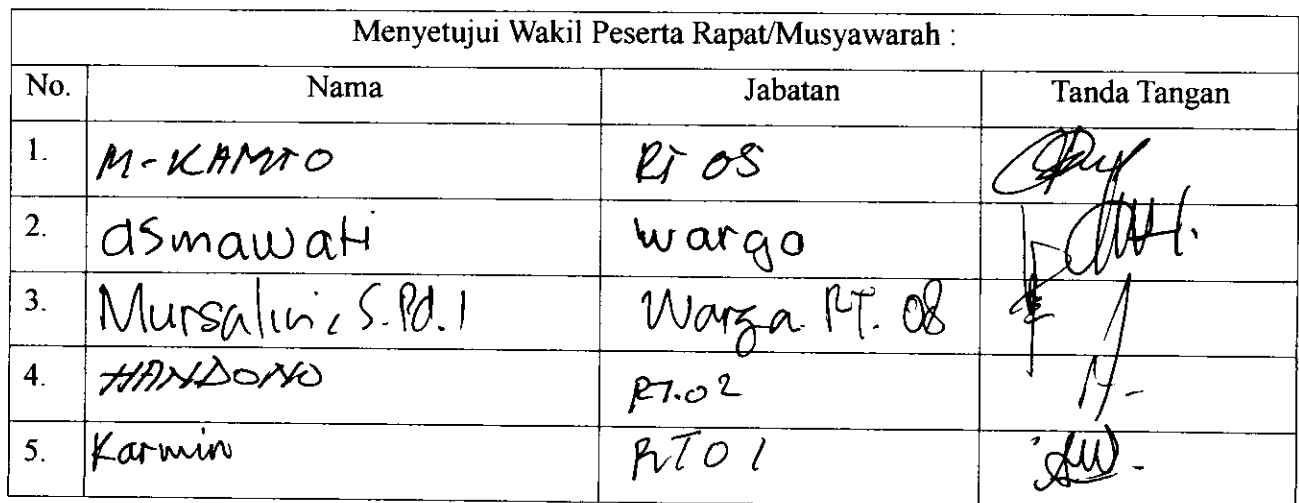 Menyetujui Wakil Peserta Rapat/Musyawarah :
No. Nama Jabatan Tanda Tangan
1. M-KAMTO RT 05
2. asmawati warga
3. Mursalin, S.Pd.I Warga RT. 08
4. HANDONO RT.02
5. Karmin RT01